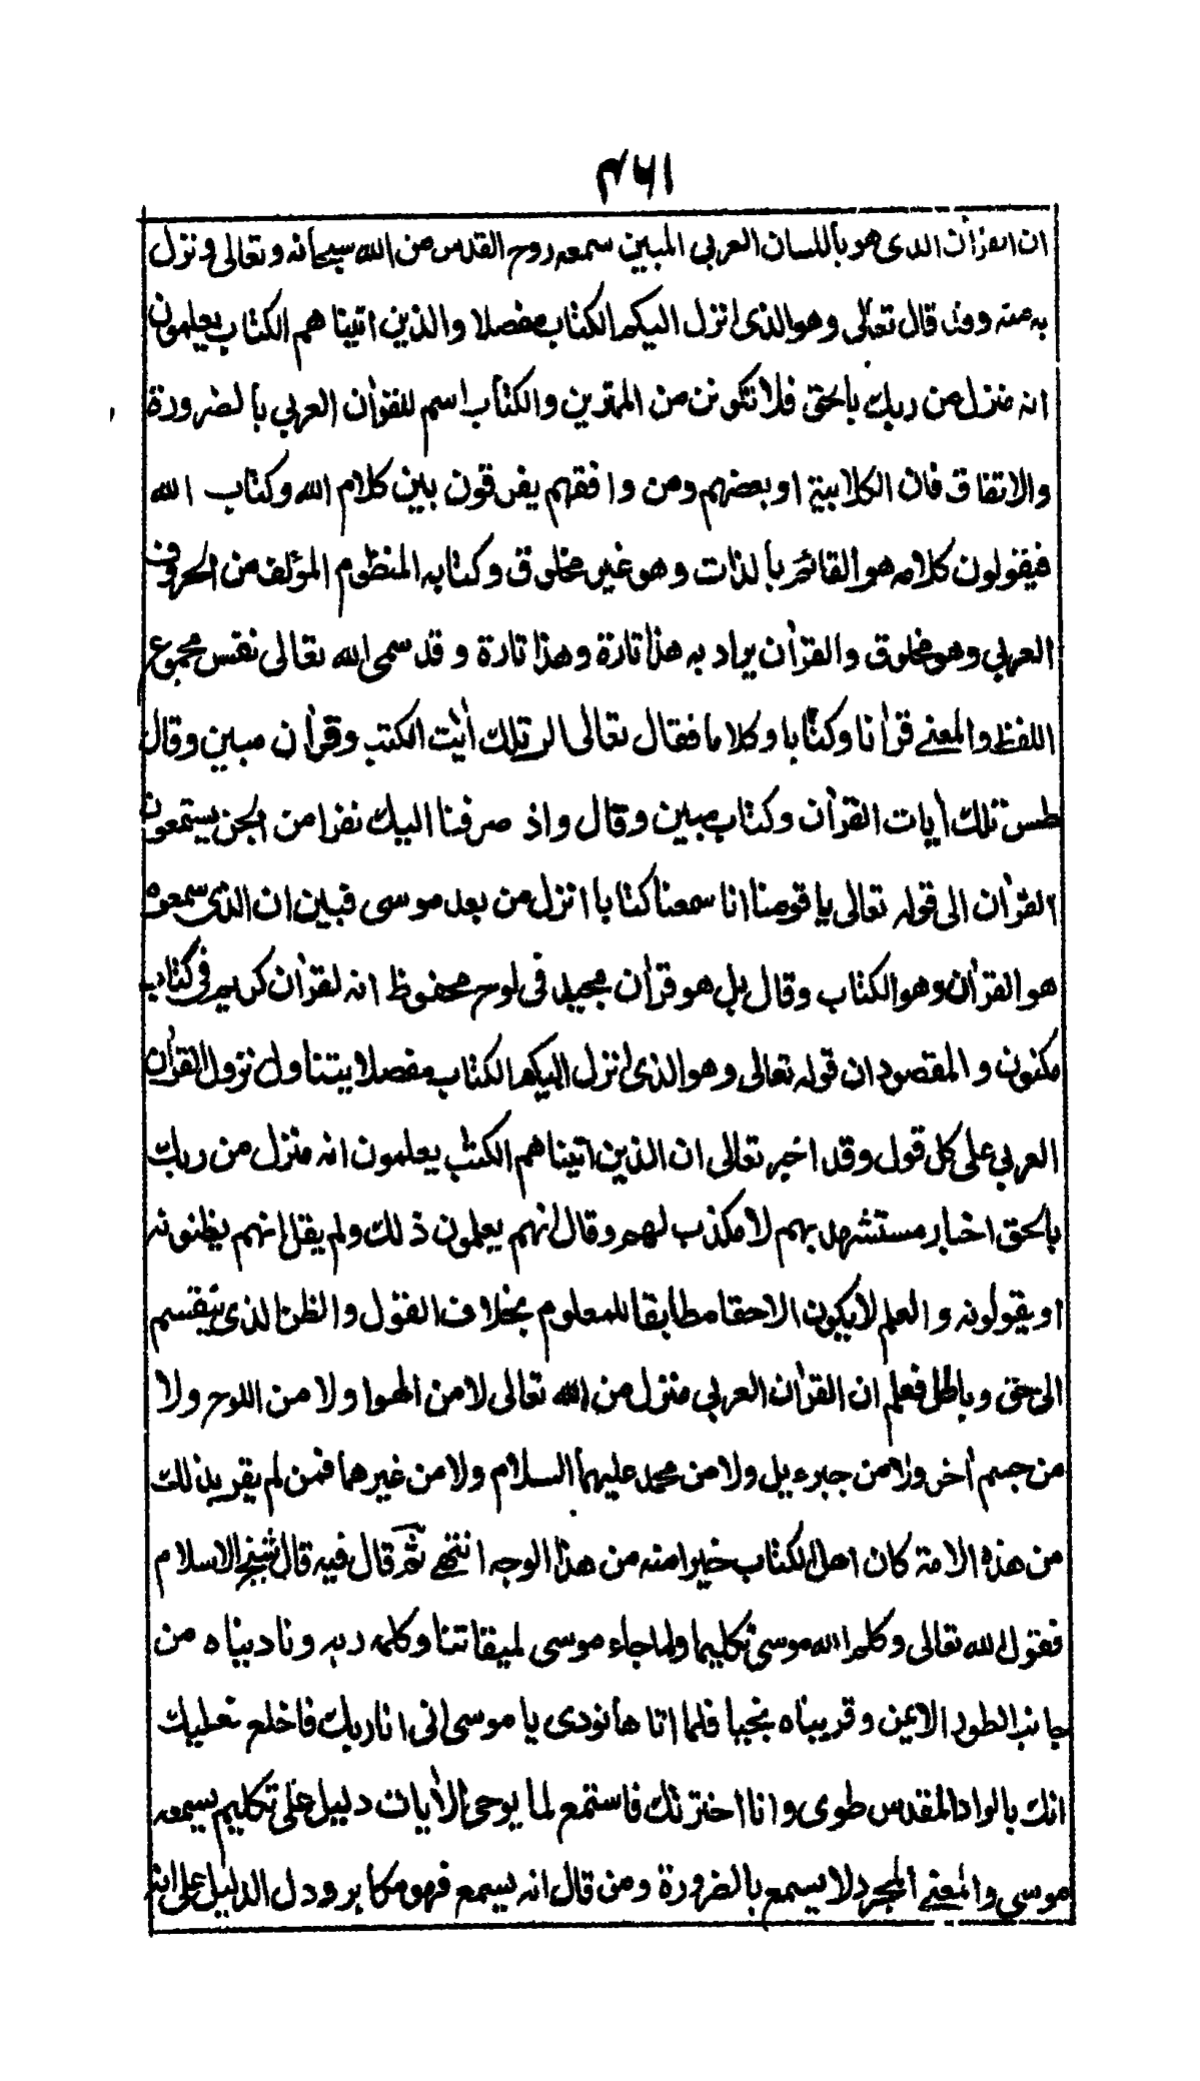 ۴۶۱
ان القرأن الذى هو باللسان العربي المبين سمعه روح القدس من الله سبحانه وتعالى ونزل
به منه وقد قال تعالى وهو الذى انزل اليكم الكتاب مفصلا والذين اتيناهم الكتاب يعلمون
انه منزل من ربك بالحق فلا تكونن من الممترين والكتاب اسم للقرأن العربي بالضرورة
والاتفاق فان الكلابية او بعضهم ومن وافقهم يفرقون بين كلام الله وكتاب الله
فيقولون كلامه هو القائم بالذات وهو غير مخلوق وكتابه المنظوم المؤلف من الحروف
العربي وهو مخلوق والقرأن يراد به هذا تارة وهذا تارة وقد سمى الله تعالى نفس مجموع
اللفظ والمعنے قرأنا وكتابا وكلاما فقال تعالى الر تلك أيٰت الكتب وقرأن مبين وقال
طس تلك أيات القرأن وكتاب مبين وقال واذ صرفنا اليك نفرا من الجن يستمعون
القرأن الى قوله تعالى يا قومنا انا سمعنا كتابا انزل من بعد موسى فبين ان الذى سمعوه
هو القرأن وهو الكتاب وقال بل هو قرأن مجيد فى لوح محفوظ انه لقرأن كريم فى كتاب
مكنون والمقصود ان قوله تعالى وهو الذى انزل اليكم الكتاب مفصلا يتناول نزول القرأن
العربي على كل قول وقد اخبر تعالى ان الذين اتيناهم الكتٰب يعلمون انه منزل من ربك
بالحق اخبار مستشهد بهم لا مكذب لهم وقال انهم يعلمون ذلك ولم يقل انهم يظنونه
او يقولونه والعلم لا يكون الا حقا مطابقا للمعلوم بخلاف القول والظن الذى ينقسم
الى حق وباطل فعلم ان القرأن العربي منزل من الله تعالى لا من الهوا ولا من اللوح ولا
من جسم أخر ولا من جبرءيل ولا من محمد عليهما السلام ولا من غيرهما فمن لم يقر بذلك
من هذه الامة كان اهل الكتاب خيرا منه من هذا الوجه انتهى ثم قال فيه قال شيخ الاسلام
فقول الله تعالى وكلم الله موسى تكليما ولما جاء موسى لميقاتنا وكلمه ربه وناديناه من
جانب الطور الايمن وقربناه نجيا فلما اتاها نودى يا موسى انى انا ربك فاخلع نعليك
انك بالواد المقدس طوى وانا اخترتك فاستمع لما يوحى الأيات دليل على تكليم يسمعه
موسى والمعنے المجرد لا يسمع بالضرورة ومن قال انه يسمع فهو مكابر ودل الدليل على انه